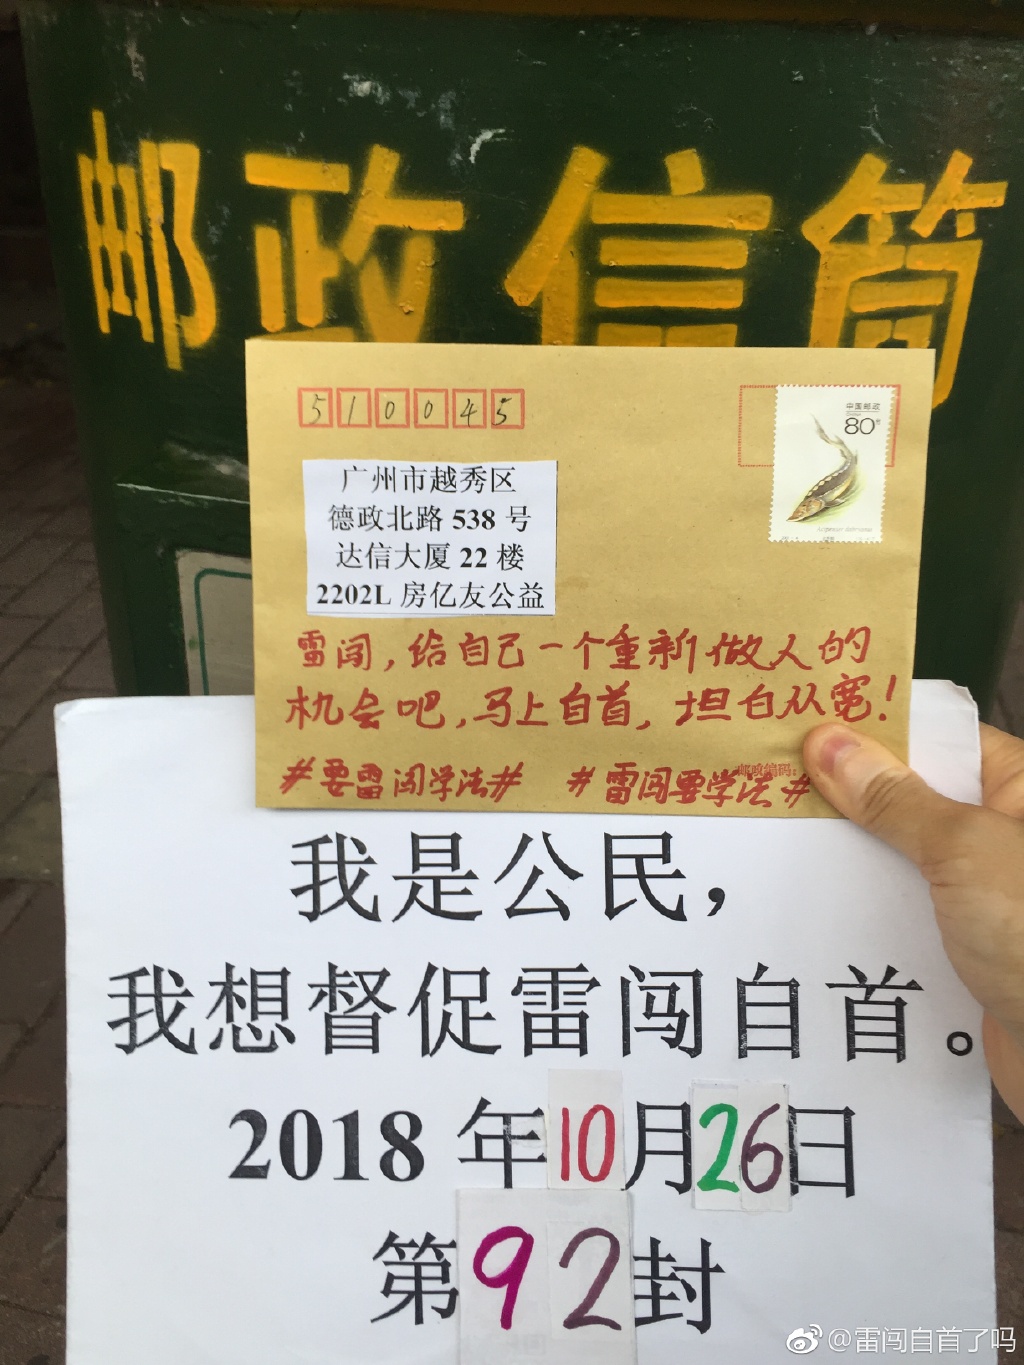 邮政信筒
510045
中国邮政
80分
广州市越秀区
德政北路 538 号
达信大厦 22 楼
2202L 房亿友公益
雷闯，给自己一个重新做人的
机会吧，马上自首，坦白从宽！
邮政编码：
#要雷闯学法# #雷闯要学法#
我是公民，
我想督促雷闯自首。
2018 年10月26日
第92封
@雷闯自首了吗